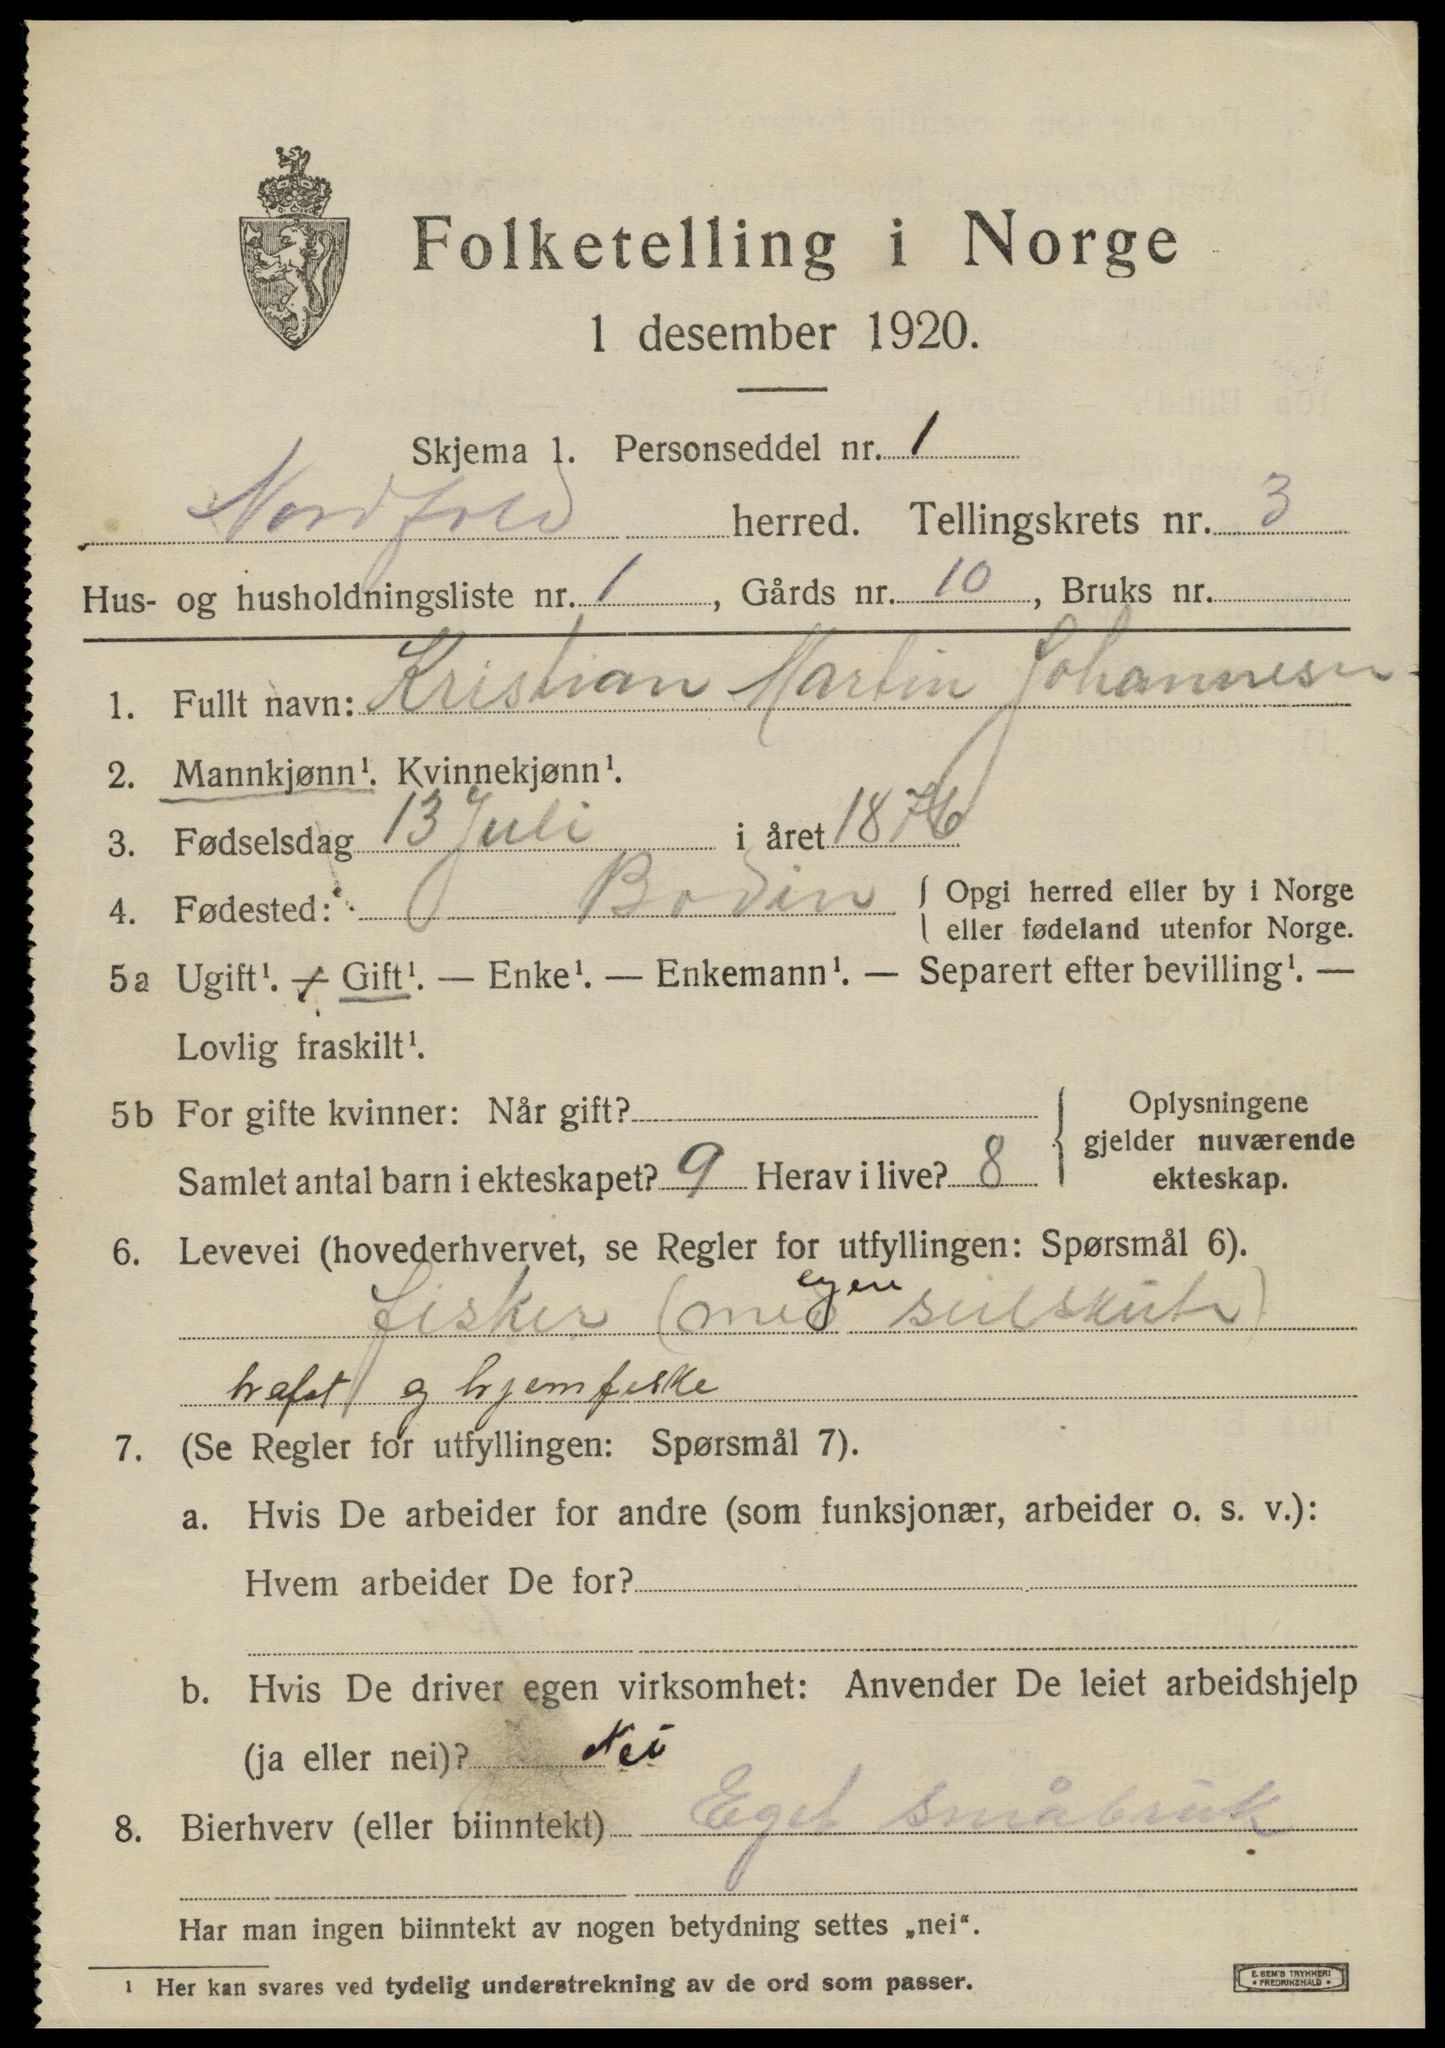 Folketelling i Norge
1 desember 1920.
Skjema 1. Personseddel nr. 1
Nordfold herred. Tellingskrets nr. 3
Hus- og husholdningsliste nr. 1, Gårds nr. 10, Bruks nr.
1. Fullt navn: Kristian Martin Johannesen
2. Mannkjønn¹. Kvinnekjønn¹.
3. Fødselsdag 13 Juli i året 1876
4. Fødested: Bodin { Opgi herred eller by i Norge
eller fødeland utenfor Norge.
5a Ugift¹. — Gift¹. — Enke¹. — Enkemann¹. — Separert efter bevilling¹. —
Lovlig fraskilt¹.
5b For gifte kvinner: Når gift?
Samlet antal barn i ekteskapet? 9 Herav i live? 8
Oplysningene
gjelder nuværende
ekteskap.
6. Levevei (hovederhvervet, se Regler for utfyllingen: Spørsmål 6).
egen
fisker (med seilskute)
og hjemfiske
7. (Se Regler for utfyllingen: Spørsmål 7).
a. Hvis De arbeider for andre (som funksjonær, arbeider o. s. v.):
Hvem arbeider De for?
b. Hvis De driver egen virksomhet: Anvender De leiet arbeidshjelp
(ja eller nei)? Nei
8. Bierhverv (eller biinntekt) Eget småbruk
Har man ingen biinntekt av nogen betydning settes „nei“.
¹ Her kan svares ved tydelig understrekning av de ord som passer.
E. SEM'S TRYKKERI
• FREDRIKSHALD •